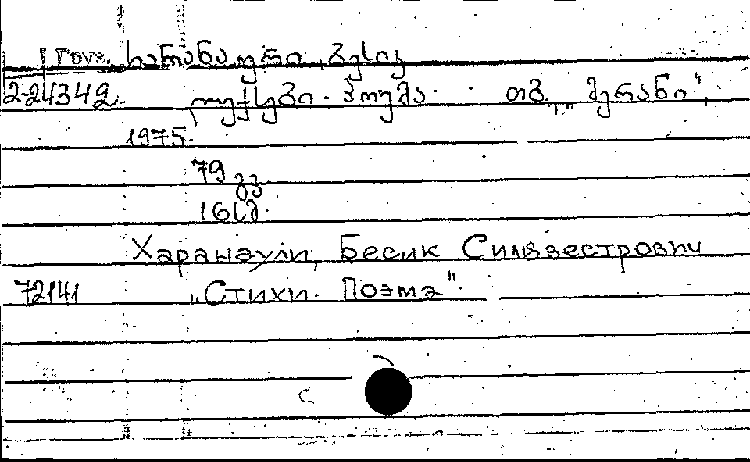 ხარანაული, ბესიკ
2-24349 ლექსები. პოემა. თბ., „მერანი",
1975.
79 გვ.
16 სმ.
Харанаули, Бесик Сильвестрович
72141 „Стихи. Поэма".